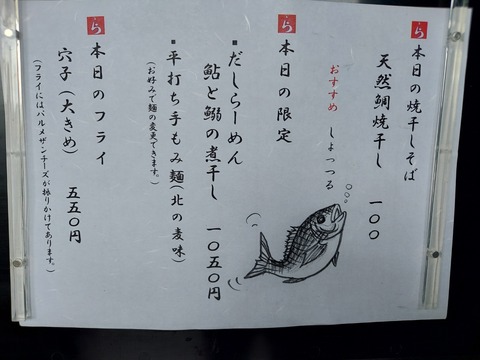 ら 本日の焼干しそば
天然鯛焼干し 一〇〇
おすすめ しょっつる
ら 本日の限定
■ だしらーめん
鮎と鰯の煮干し 一〇五〇円
■ 平打ち手もみ麺(北の麦味)
(お好みで麺の変更できます。)
ら 本日のフライ
穴子(大きめ) 五五〇円
(フライにはパルメザンチーズが振りかけてあります。)